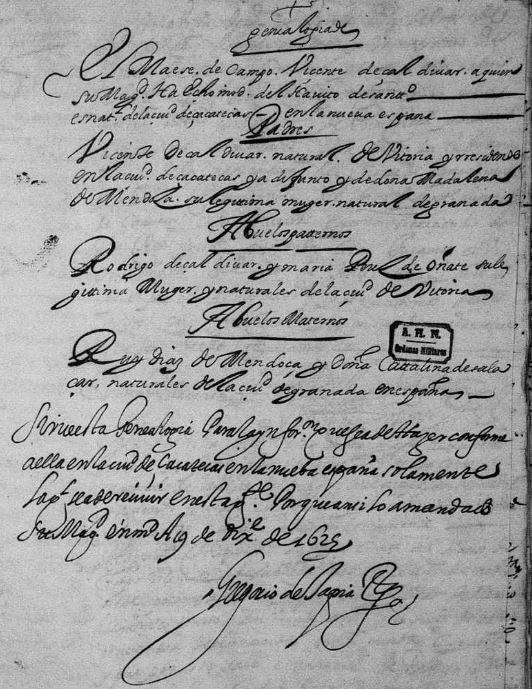 genealogia de
El Maese. de Campo. Vicente de çal diuar. a quien
su Magd. Ha hecho mrd. del Hauito de santto
es natl. de la ciud. de çacatecas en la nueua españa
Padres
Vicente de çal diuar. natural. de Vitoria y rresidente
en la ciud. de çacatecas ya difunto y de doña Madalena
de Mendoça. su legitima muger. natural de granada
Abuelos patternos
Rodrigo de çal diuar. y maria Perez de Oñate su le
gittima Muger. y naturales de la ciud. de Vitoria
Abuelos Maternos
A. H. N.
Ordenes Militares
Ruy dias de Mendoca y Doña Cattalina de sala
çar. naturales de la ciud. de granada en españa
Sirue esta Genealogia Para la ynforon. que se a de Hazer conforme
a ella en la ciud. de Cacatecas en la nueba españa solamente
la qual se a de reciuir en esta Porque ansi lo a mandado
Su Magd. en md. A 19 de dize. de 1625
Gregorio de Tapia